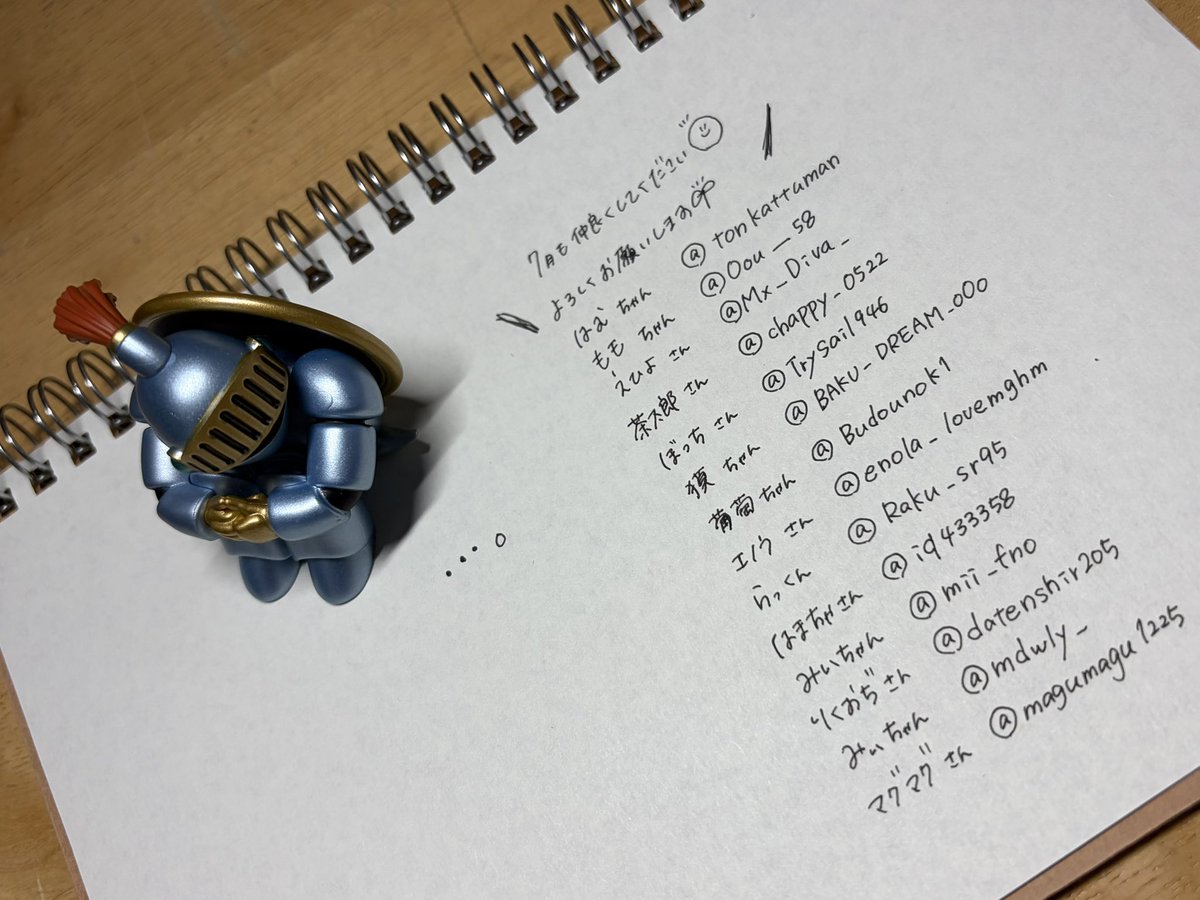 7月も仲良くしてください
よろしくお願いします
はむちゃん @tonkattaman
ももちゃん @Oou_58
えひよさん @Mx_Diva_
茶太郎さん @chappy_0522
ぼっちさん @Trysail946
獏ちゃん @BAKU_DREAM_o0o
葡萄ちゃん @Budounok1
エノウさん @enola_lovemghm
らっくん @Raku_sr95
はまちゃさん @iq433358
みいちゃん @mii_fno
りくおぢさん @datenshir205
みぃちゃん @mdwly_
マグマグさん @magumagu1225
....o